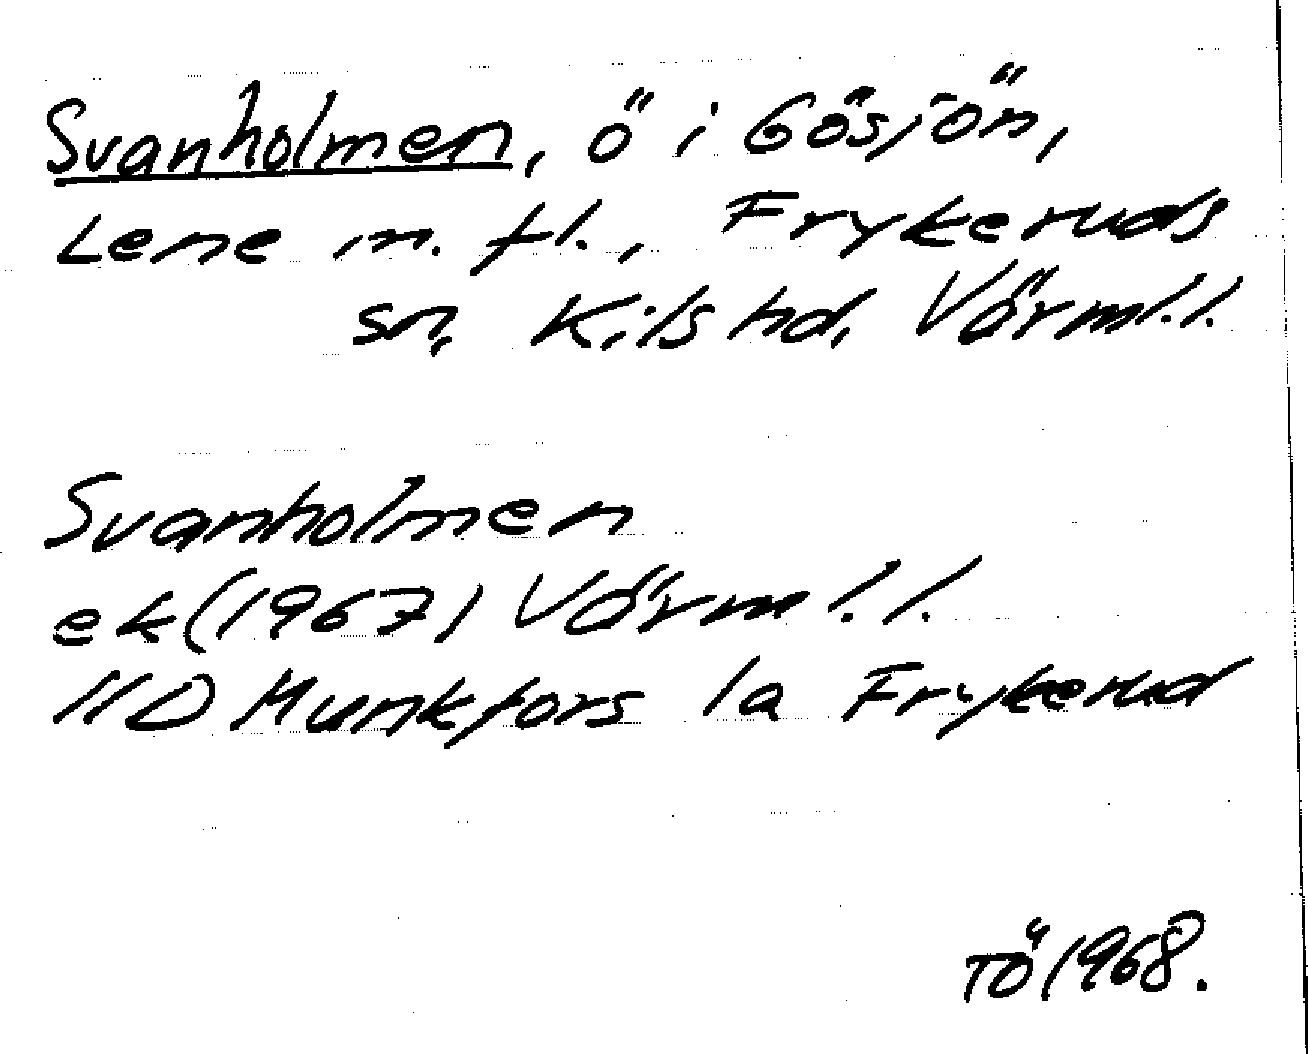 Svanholmen, ö i Gösjön,
Lene m. fl., Frykeruds
sn, Kils hd, Värml. l.
Svanholmen
ek (1967) Värml. l.
11D Munkfors 1a Frykerud
TÖ 1968.